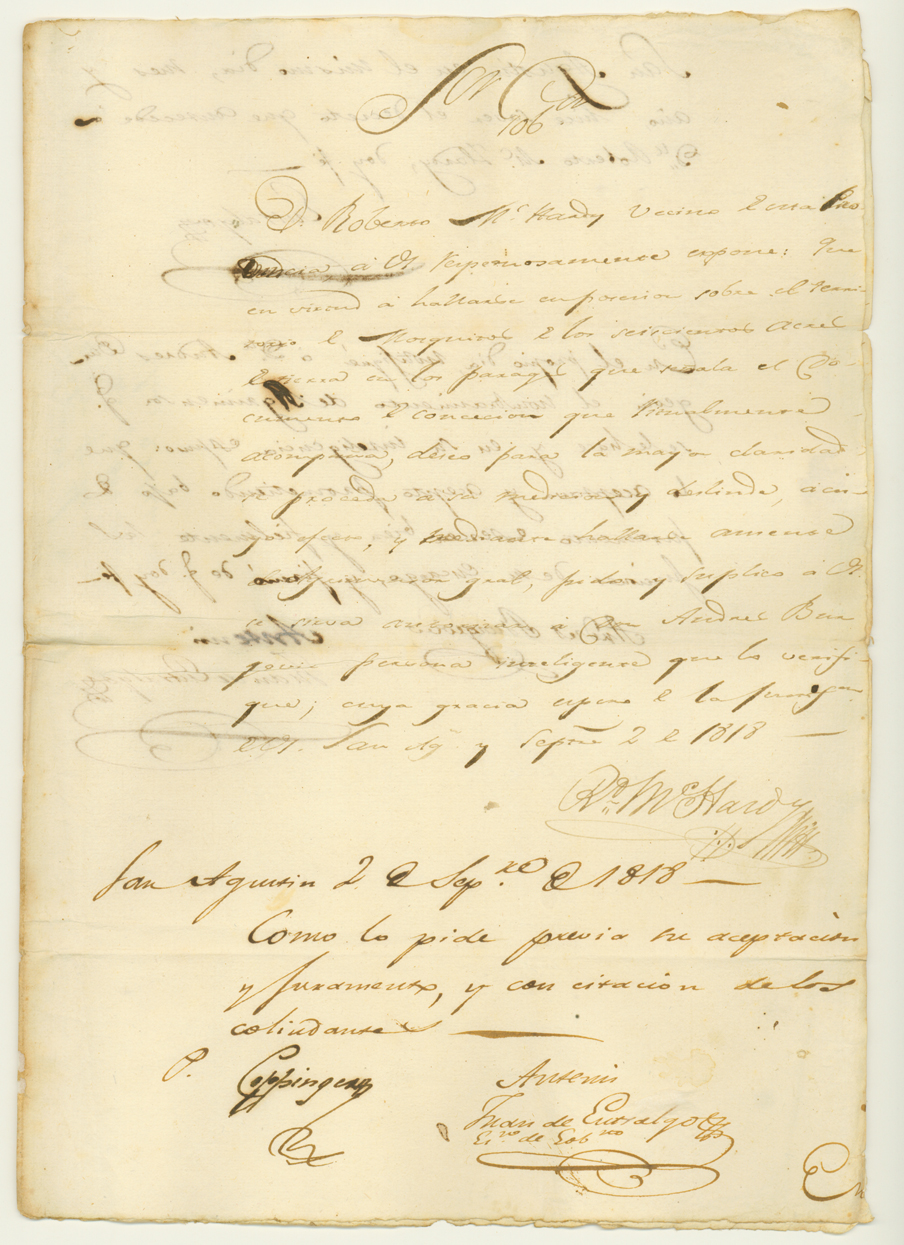 Sor Gor
D. Roberto Mc Hardy Vecino de esta Pro
vincia, á VS. respetuosamente expone: Que
en virtud á hallarse en posesion sobre el terri
torio de Mosquitos de los seiscientos acres
de tierra en los parages que señala el Do-
cumento de concesion que igualmente
acompaña, deseo para la mayor claridad
proceder á su medicion y deslinde, á cu-
yo efecto, y mediante hallarse ausente
el Agrimensor gral, pido y suplico á VS.
se sirva autorizar á Dn Andres Bur
gevin persona inteligente que lo verifi-
que; cuya gracia espero de la
de VS. San Agn y Septre 2 de 1818 —
Rdo McHardy
San Agustin 2 de Sepre de 1818 —
Como lo pide previa su aceptacion
y juramento, y con citacion de los
colindantes —
P. Coppinger
Antemi
Juan de Entralgo
Esno de Gobno
En